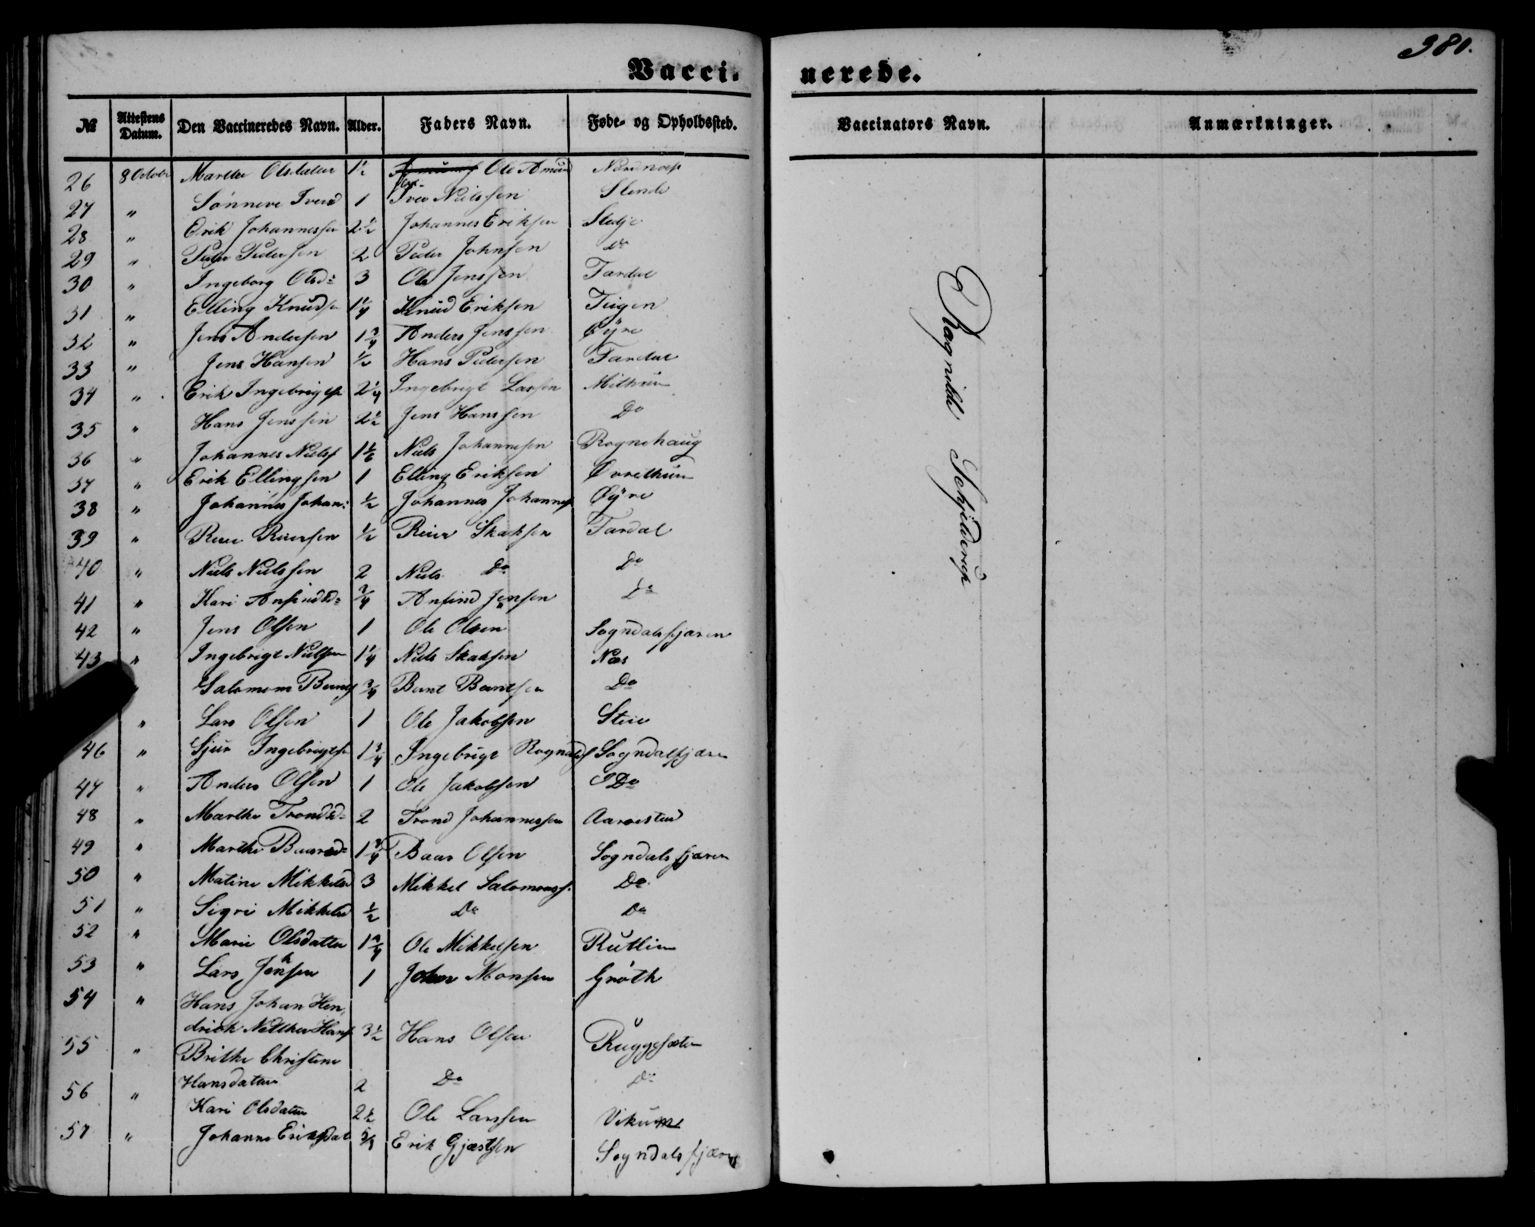 Vacci- nerede.
381.
№ | Attestens Datum. | Den Vaccineredes Navn. | Alder. | Faders Navn. | Føde- og Opholdssted. | Vaccinators Navn. | Anmærkninger.
26 8 October Marthe Olsdatter 1½ Ole Amund
27 " Sønneve Iversd 1 Iver Nielssen Stende
28 " Erik Johannessen 2½ Johannes Eriksen Stedje
29 " Peder Pedersen 2 Peder Johnsen Do
30 " Ingeborg Olsd: 3 Ole Jenssen Fardal
31 " Elling Knuds 1¼ Knud Eriksen Teigen
32 " Jens Andersen 1¾ Anders Jenssen Øyre
33 " Jens Hansen ½ Hans Pedersen Fardal
34 " Erik Ingebrigts 2¼ Ingebrigt Larsen Milhun
35 " Hans Jenssen 2½ Jens Hanssen Do
36 " Johannes Niels 1½ Niels Johannesen Rognehaug
37 " Erik Ellingsen 1 Elling Eriksen Øvrethun
38 " Johannes Johan: ½ Johannes Johannes Øyre
39 " Reier Reiersen ½ Reier Skaksen Fardal
40 " Niels Nielssen 2 Niels Do Do
41 " Kari Ansindsd: ¾ Ansind Jensen Do
42 " Jens Olsen 1 Ole Olsen Sogndalsfjæren
43 " Ingebrigt Nielsen 1¼ Niels Skaksen Næs
Salomom Bernts ¾ Bent Bentsen Do
" Lars Olsen 1 Ole Jakobsen Steie
46 " Sjur Ingebrigtsen 1¾ Ingebrigt Rognalds Sogndalsfjæren
47 " Anders Olsen 1 Ole Jakobsen Do
48 " Marthe Trondsd: 2 Trond Johannessen Aarvestun
49 " Marthe Baarsd: 1¾ Baar Olsen Sogndalsfjæren
50 " Matine Mikkelsd 3 Mikkel Salomons. Do
51 " Sigri Mikkelsd ½ Do Do
52 " Marie Olsdatter 1¾ Ole Mikkelsen Rutlin
53 " Lars Johnsen 1 John Monsen Grøth
54 " Hans Johan Hen-
drick Nelther Hans 3½ Hans Olsen Ruggesæter
55 " Brithe Christine
Hansdatter 2 Do Do
56 " Kari Olsdatter 2½ Ole Larssen Vikum
57 " Johanne Eriksdat ¾ Erik Gjæstsen Sogndalsfjæren
Ragnild Schjelderup